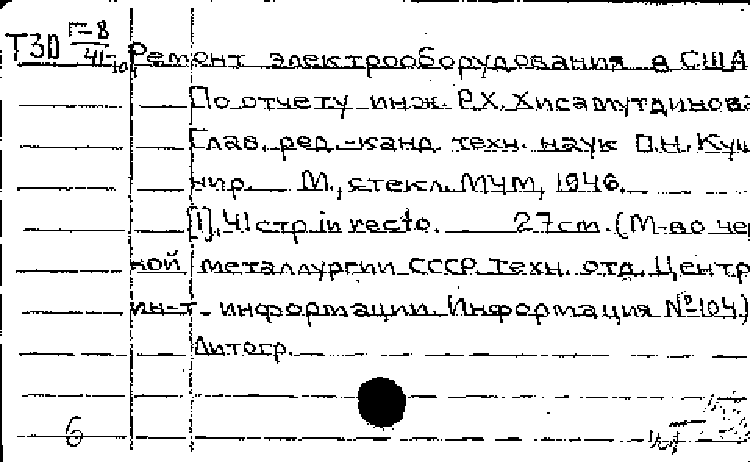 Т30 Г-8/41
Ремонт электрооборудования в США
По отчету инж. Р.Х. Хисамутдинова
Глав. ред.-канд. техн. наук П.Н. Куш
нир. М., стекл. МЧМ, 1946.
[1], 41 стр. in recto. 27 см. (М-во чер
ной металлургии СССР. Техн. отд. Центр
ин-т. информации. Информация №104.)
Литогр.
6